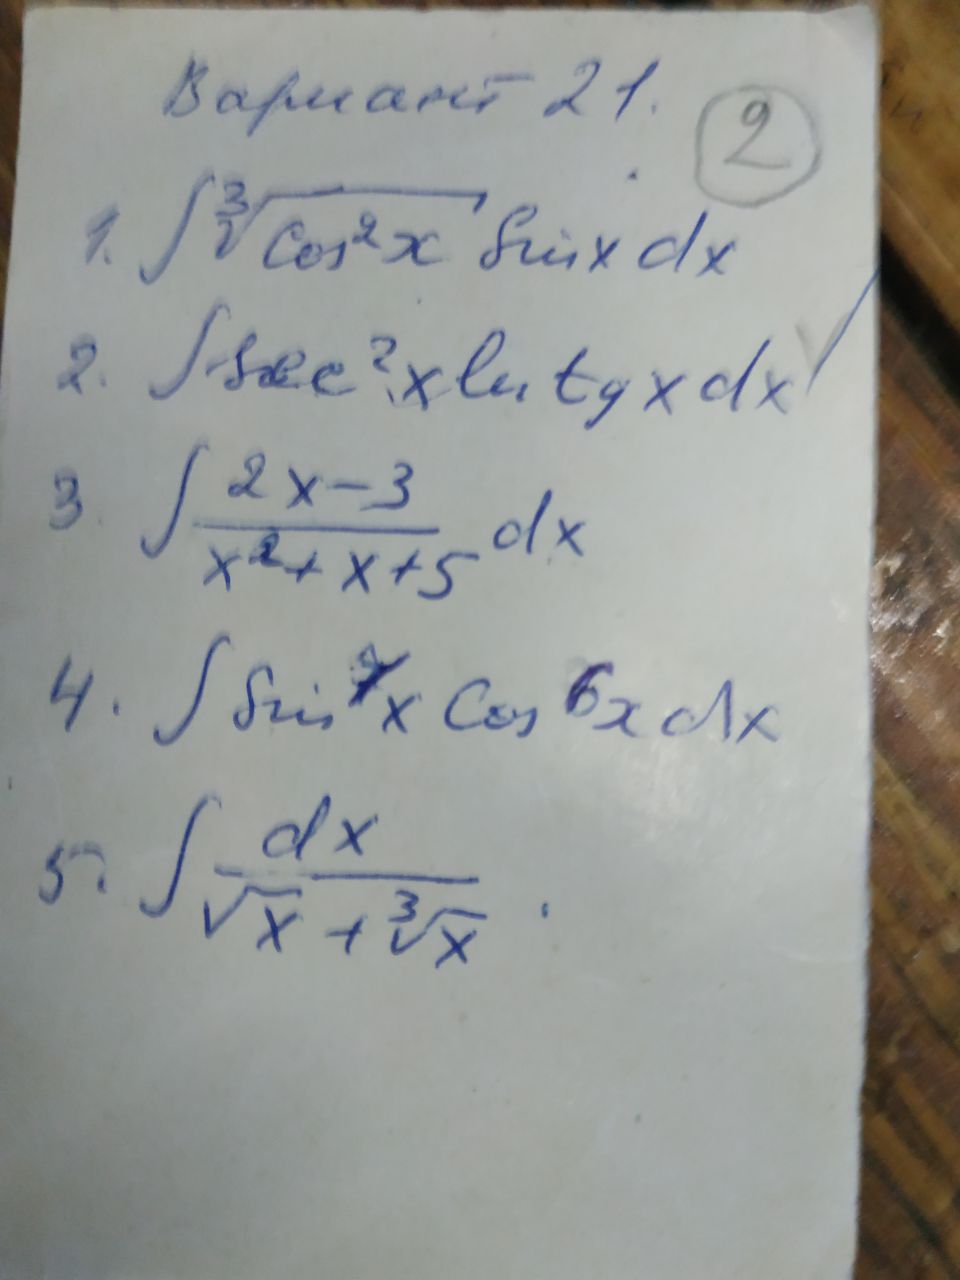 Вариант 21.
2
1. ∫ ∛(cos²x) sin x dx
2. ∫ sec²x ln tg x dx
3. ∫ (2x-3)/(x²+x+5) dx
4. ∫ sin x cos⁶x dx
5. ∫ dx/(√x + ∛x).